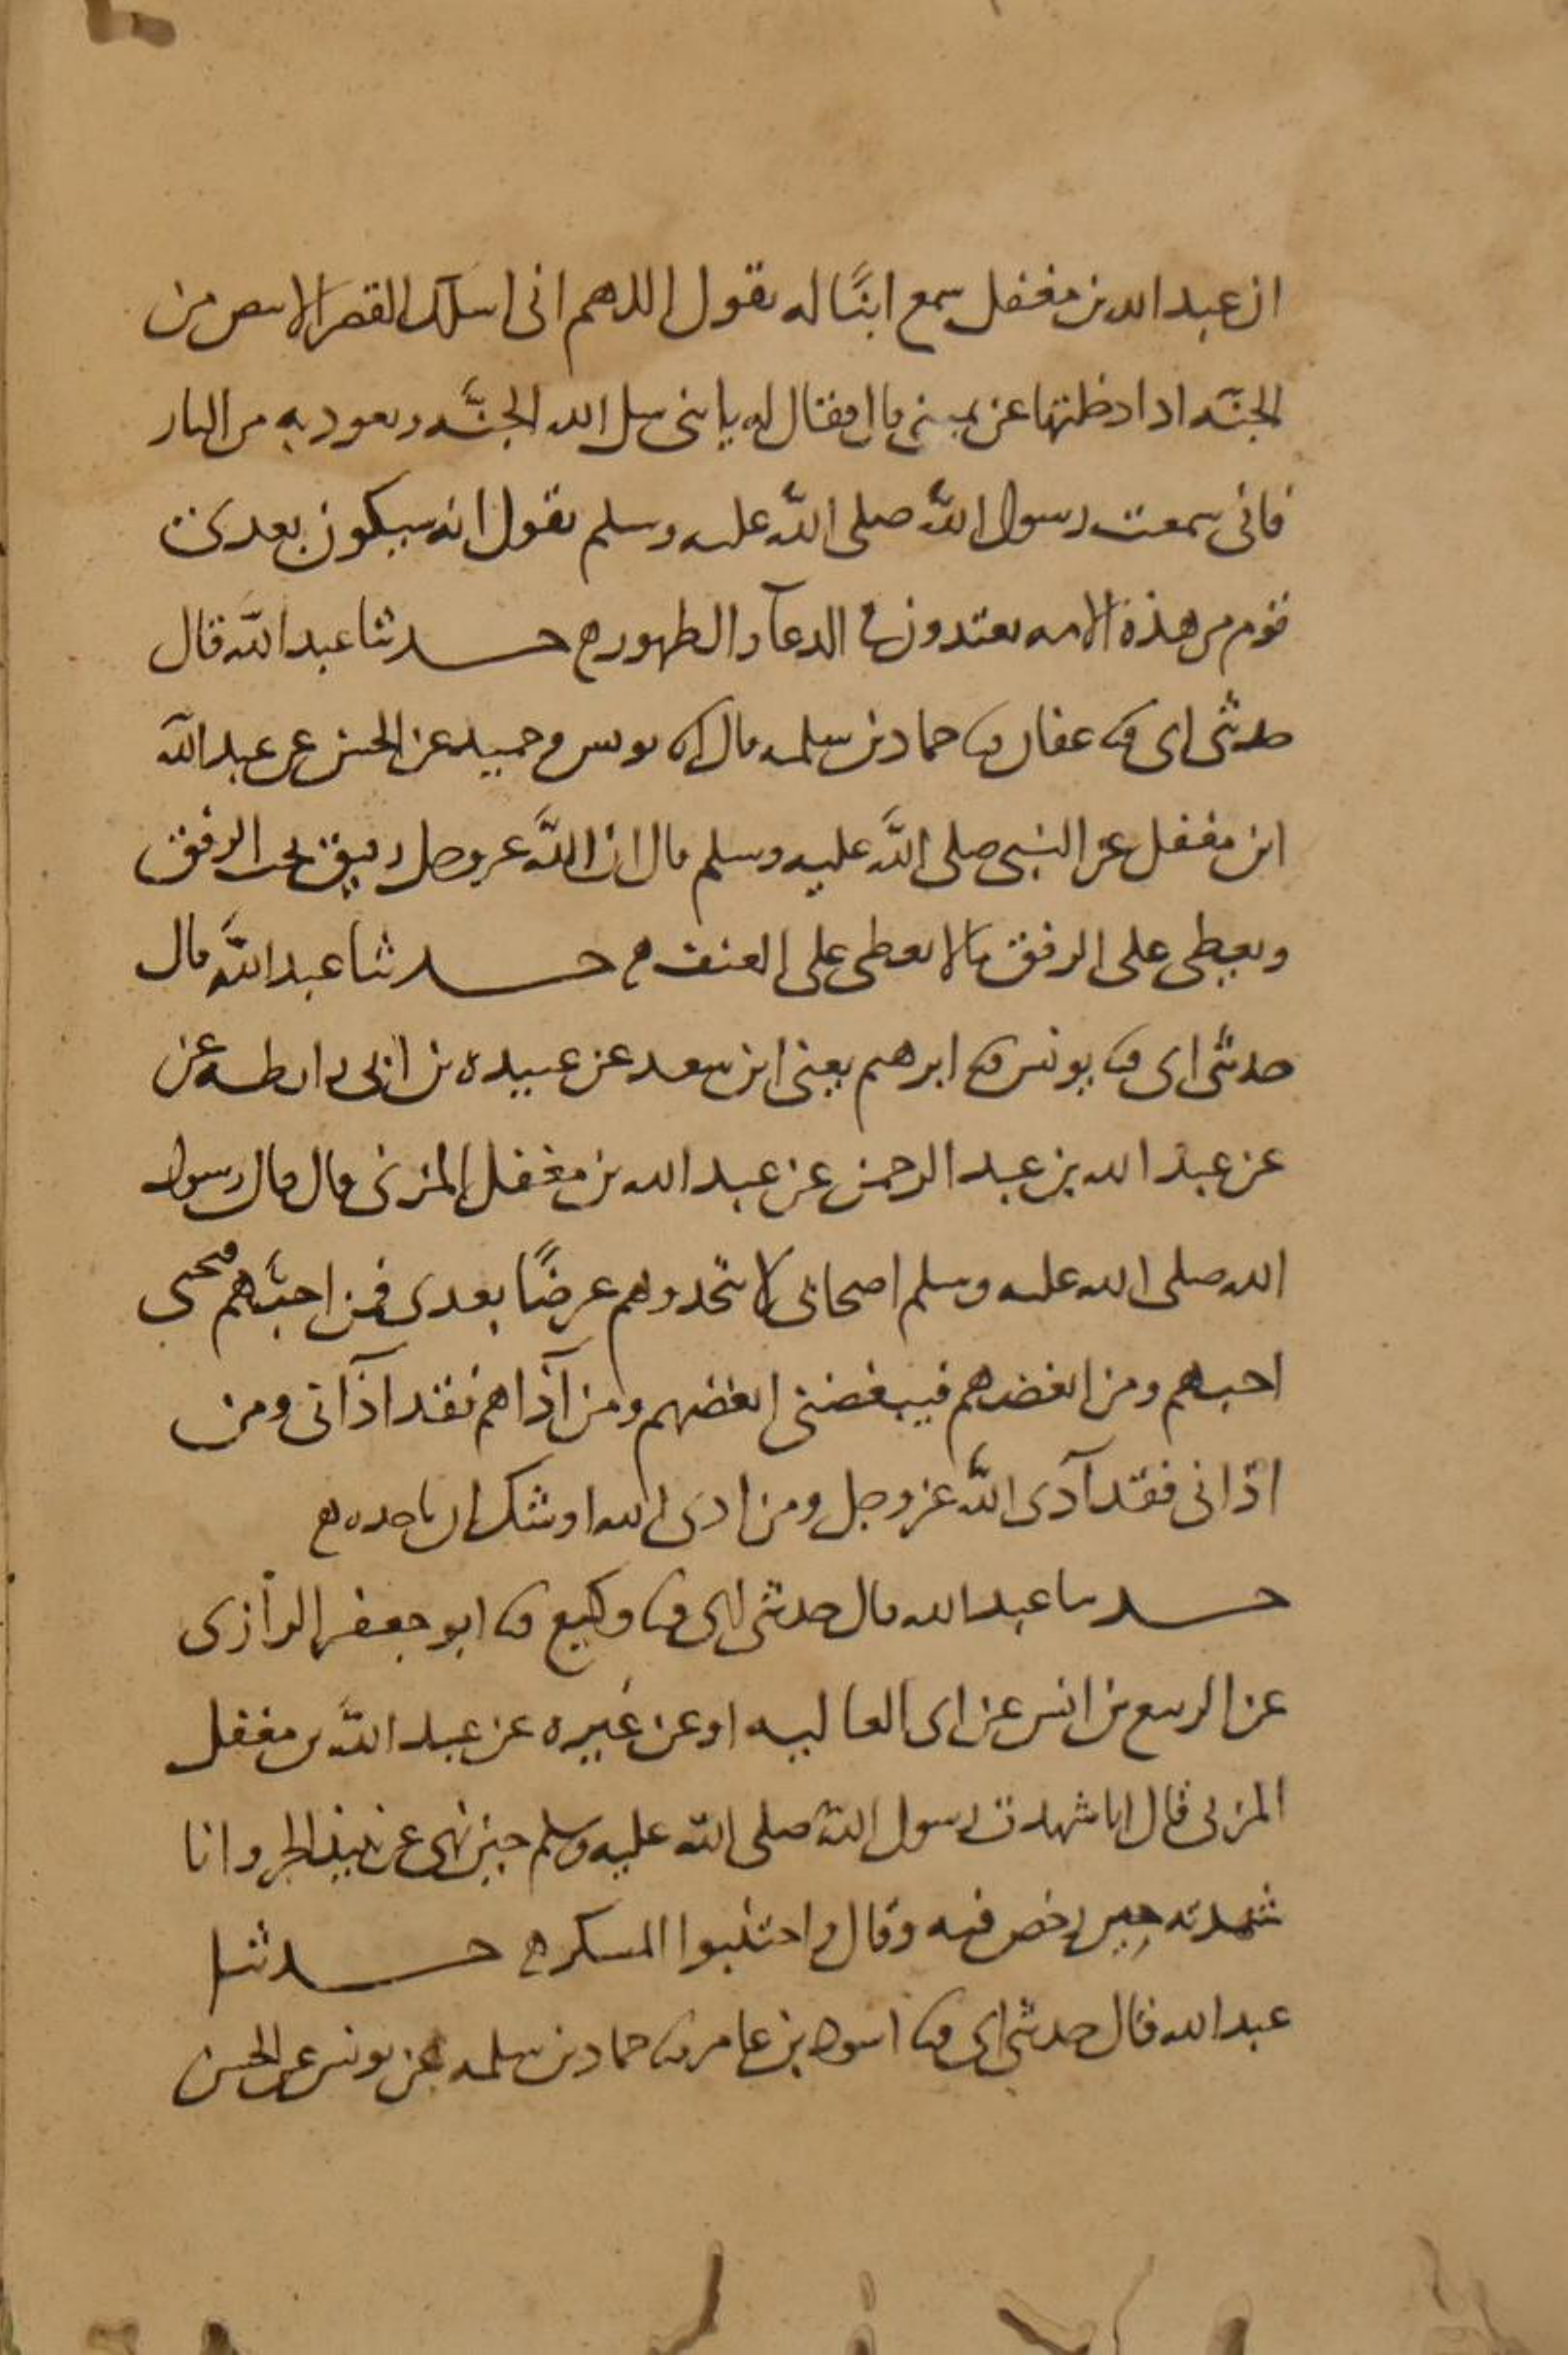 ان عبد الله بن مغفل سمع ابنًا له يقول اللهم انى اسلك القصر الابيض من
الجنّه اذا دخلتها عن يمينى قال فقال له يا بنى سل الله الجنّه وتعوذ به من النار
فانى سمعت رسول اللّه صلى اللّه عليه وسلم يقول انه سيكون بعدى
قوم من هذه الامه يعتدون فى الدعآ والطهور حدثنا عبد اللّه قال
حدثنى ابى ثنا عفان ثنا حماد بن سلمه قال انا يونس وحميد عن الحسن عن عبد اللّه
ابن مغفل عن النبى صلى اللّه عليه وسلم قال ان اللّه عز وجل رفيق يحب الرفق
ويعطى على الرفق ما لا يعطى على العنف حدثنا عبد اللّه قال
حدثنى ابى ثنا يونس ثنا ابرهيم يعنى ابن سعد عن عبيده بن ابى رايطه عن
عن عبد الله بن عبد الرحمن عن عبد الله بن مغفل المزنى قال قال رسول
الله صلى الله عليه وسلم اصحابى لا تتخذوهم عرضًا بعدى فمن احبّهم فبحبى
احبهم ومن ابغضهم فيبغضنى ابغضهم ومن آذاهم فقد اذآنى ومن
اذانى فقد آذى اللّه عز وجل ومن اذى الله اوشك ان ياخده
حدثنا عبد الله قال حدثنى ابى ثنا وكيع ثنا ابو جعفر الرازى
عن الربيع بن انس عن ابى العاليه او عن غيره عن عبد اللّه بن مغفل
المزنى قال انا شهدت رسول اللّه صلى اللّه عليه وسلم حين نهى عن نبيذ الجر وانا
شهدته حين رخص فيه وقال واجتنبوا المسكر حدثنا
عبد الله قال حدثنى ابى ثنا اسود بن عامر ثنا حماد بن سلمه عن يونس عن الحسن